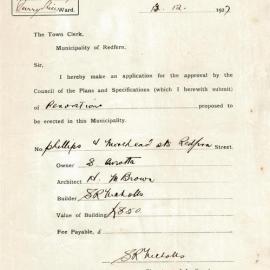 Ward. 13. 12. 1927
The Town Clerk,
Municipality of Redfern.
Sir,
I hereby make an application for the approval by the
Council of the Plans and Specifications (which I herewith submit)
of Renovations proposed to
be erected in this Municipality.
No. Phillips & Morehead sts Redfern Street.
Owner S.
Architect H. M Brown
Builder S R Nicholls
Value of Building £850
Fee Payable, £
S R Nicholls